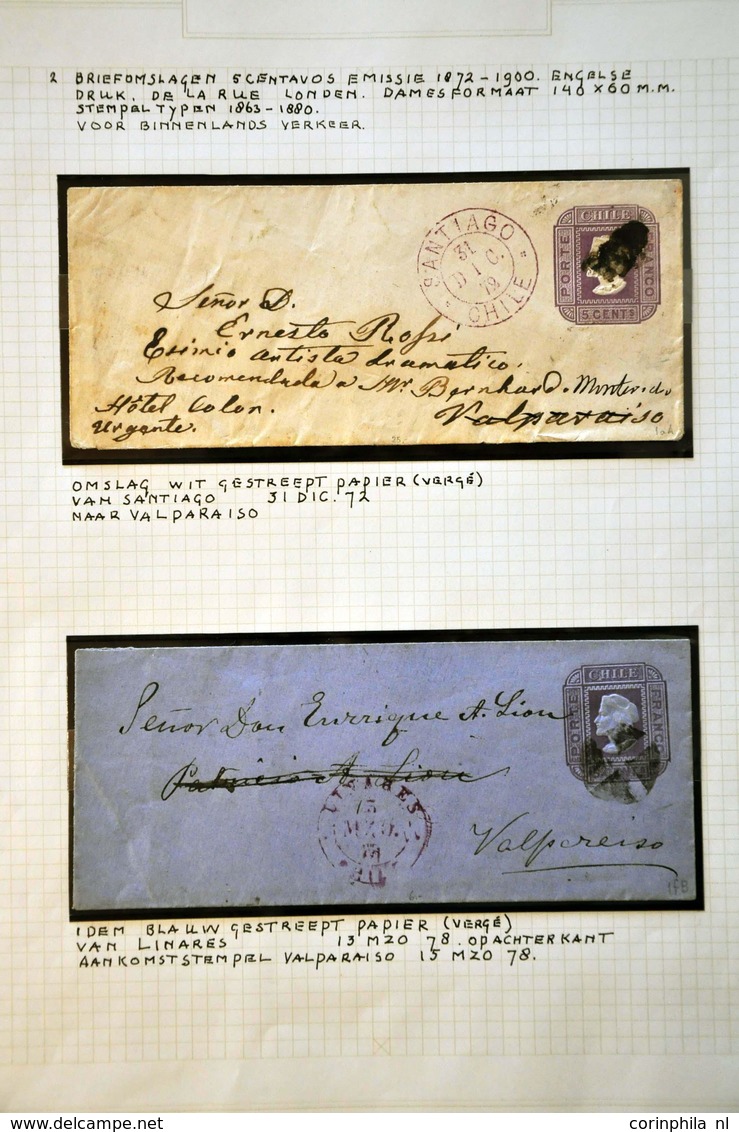 2 BRIEFOMSLAGEN 5 CENTAVOS EMISSIE 1872-1900. ENGELSE
DRUK. DE LA RUE LONDEN. DAMESFORMAAT 140 X 60 M.M.
STEMPEL TYPEN 1863-1880.
VOOR BINNENLANDS VERKEER.
SANTIAGO
31
DIC.
72
CHILE
CHILE
PORTE
FRANCO
5 CENTS
Señor D.
Ernesto Rossi
Eximio artista dramatico.
Recomendada a Mr Bernhard. Montevideo
Hôtel Colon. Valparaiso
Urgente.
1aA
OMSLAG WIT GESTREEPT PAPIER (VERGÉ)
VAN SANTIAGO 31 DIC. 72
NAAR VALPARAISO
CHILE
PORTE
FRANCO
Señor Don Enrrique A. Lion
Patricio A. Lion
LINARES
MZO.
78
Valpareiso
1fB
IDEM BLAUW GESTREEPT PAPIER (VERGÉ)
VAN LINARES 13 MZO 78. OP ACHTERKANT
AANKOMSTSTEMPEL VALPARAISO 15 MZO 78.
corinphila nl